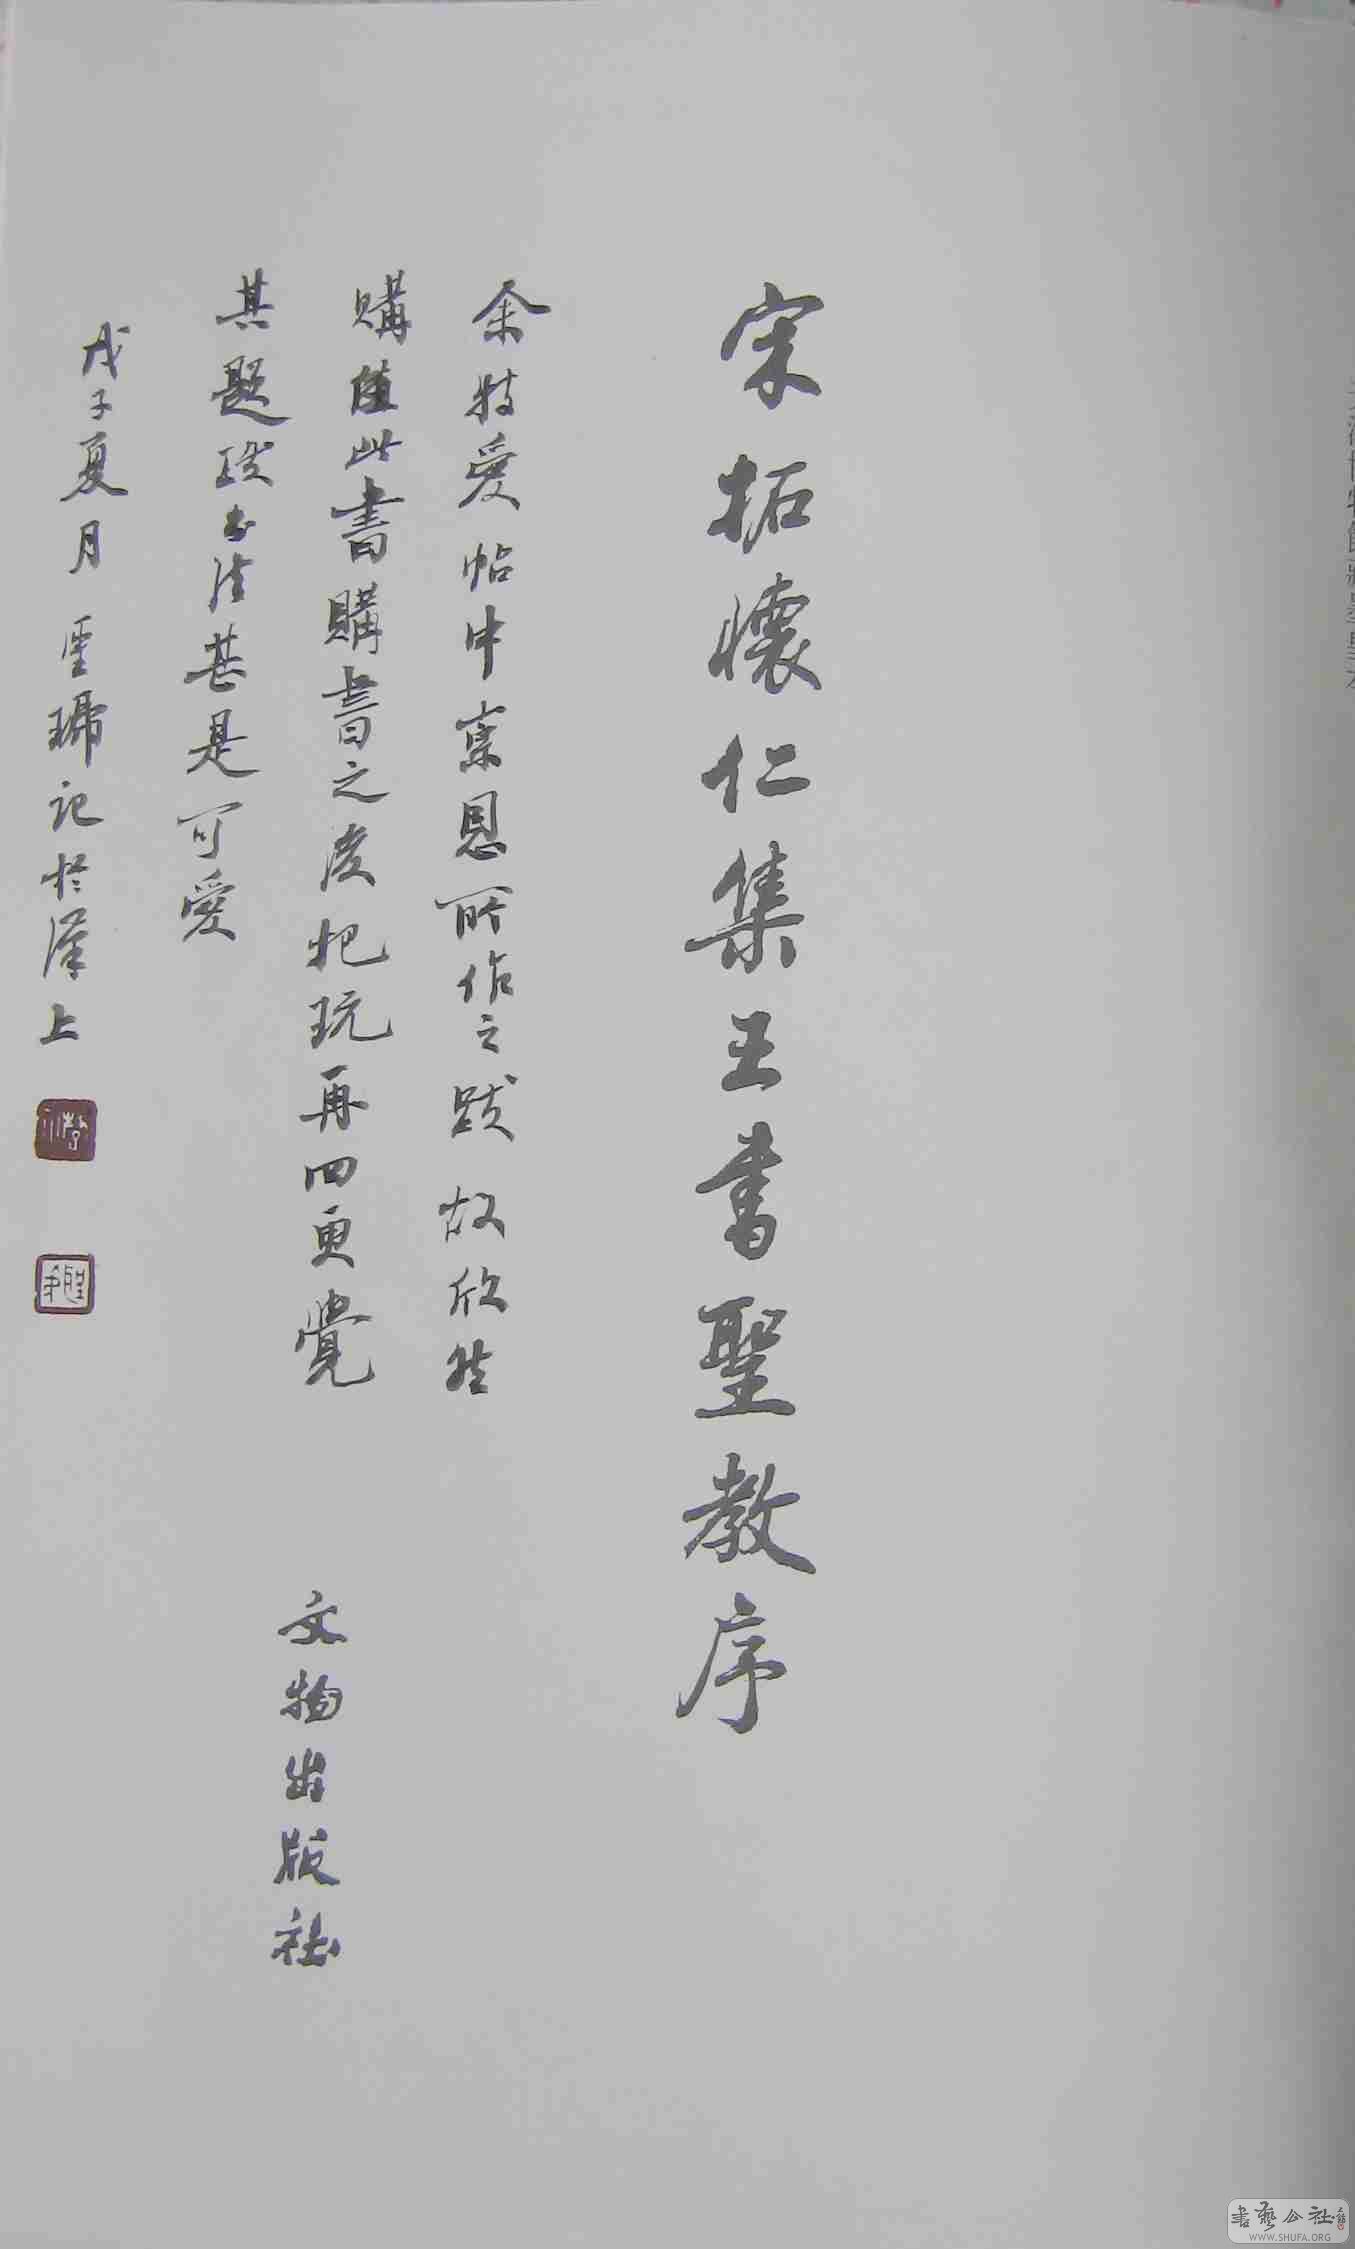 宋拓懷仁集王書聖教序
余特愛帖中崇恩所作之跋故欣然
購值此書購書之後把玩再四更覺
其題跋書法甚是可愛
戊子夏月記於漢上
文物出版社
書藝公社
WWW.SHUFA.ORG